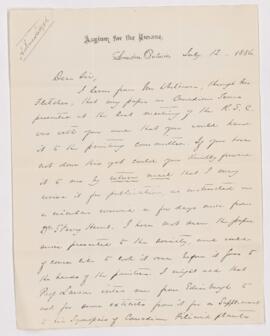 Asylum for the Insane,
London Ontario July 12. 1886
Dear Sir,
I learn from Mr Whiteaves, through Mr
Fletcher, that my paper on Canadian
presented at the last meeting of the R. S. C.
was with you and that you would hand
it to the printing committee. If you have
not done this yet could you kindly forward
it to me by return mail that I may
revise it for publication, as instructed me
a few days since from
Dr Sterry Hunt. I have not seen the paper
since presented to the society, and would
of course like to look it over before it goes to
the hands of the printers. I might add that
Prof Lawson wrote me from Edinburgh to
ask for some for a Supplement
to his Synopsis of Canadian Filicoid plants